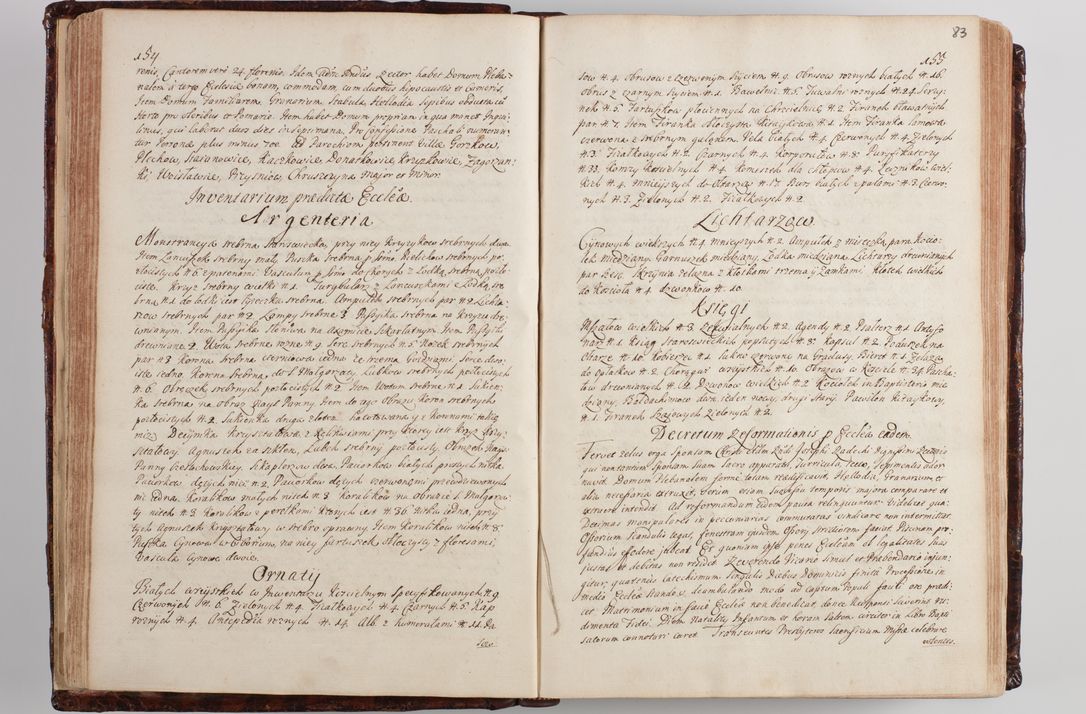 154
renis, Cantorem vero 24. florenis. Idem Rdus Rector habet Domum Pleba-
nalem, bonam, commodam cum duobus hipocaustis et cameris,
Item Domum familiarem, Granarium, Stabula,
Horto pro oleribus et Pomario. Item habet Domum propriam in qua manet Inqui-
linus, qui laborat duos dies in septimana. Pro Confessione Paschali numeran-
tur Personæ plus minus 700. Ad Parochiam pertinent Villæ Gorzkow,
Plechow, Stasanowice, Kaczkowice, Donatkowice, Krzyskowice, Zagorzan-
ki, Woislawice, Przysnica, Chruszczyna major et minor.
Inventarium prædictæ Ecclæ.
Argenteria
Monstrancya srebrna Staroswiecka, przy niey krzyzykow srebrnych dwa.
Item Lancuzek srebrny maly, Puszka srebrna Kielichow srebrnych po-
zlocistych # 6 z patenami Vasculum z Lodką srebrną pozlo-
ciste. Krzyz srebrny wielki # 1. Turybularz z Lancuszkami
brna # 1. do lodki iest lyzeczka srebrna. Ampulek srebrnych par # 2. Lichta-
rzow srebrnych par # 2. Lampy srebrne 3 Passyika srebrna na krzyzu dre-
wnianym. Item Passyika Sloniowa na axamicie Szkarlatnym. Item Passyiki
drewniane 2. Wota srebrne rozne # 9. Serc srebrnych # 5. Nozek srebrnych
par # 3 Korona srebrna cierniowa iedna ze trzema Gwozdziami, Serce dwo-
iste iedno, Korona srebrna, do S Malgorzaty, Lubkow srebrnych pozlocistych
# 6. Obrączek srebrnych pozlocistych # 2. Item Votum srebrne # 1. Sukien-
ka srebrna na obraz Nays Panny Item do tego Obrazu koron srebrnych
pozlocistych # 2. Sukienka druga zlotem haftowana z koronami takie-
miz Dewymka krysztalowa z Relikwiarzami przy ktorey iest krzyz kry-
sztalowy, Agnusek za szklem, Lubek srebrny pozlocisty, Obrazek Nays:
Panny Częstochowskiey. Szkaplerzow dwa, Paciorkow bialych prostych nitka.
Paciorkow dętych nici # 2. Paciorkow dętych czerwonemi przedziewanych
nic iedna. Koralikow malych nitek # 3 Koralikow na obrazie S. Malgorza-
ty nitek # 3 Koralikow z perelkami ktorych iest # 36. Nitka iedna, przy
tych Agnuszek krysztalowy w srebro oprawny. Item koralikow nitek # 8
Puszka Cynowa w Ciborium, na niey fartuszek Atlczysty z floresami,
Vascula Cynowe dwoie.
Ornaty
Bialych wszystkich w Inwentarzu Koscielnym Specyfikowanych # 9
Czerwonych # 6 Zielonych # 4. Fialkowych # 4. Czarnych # 5. Kap
roznych # 4. Antepedia roznych # 14. Alb z humeralami # 11. Pa-
sow
83
155
sow # 4. Obrusow z czerwonym szyciem # 9. Obrusow roznych bialych # 16.
Obrus z czarnym szyciem # 1. Bawelni # 5. Tuwalni roznych # 24.
nek # 5. Fartuszkow plociennych na Chrzcielnicę # 2 Firanek blawatnych
par # 7. Item Firanka Kitaykowa # 1. Item Firanka lamowa
czerwona z srebrnym galonem. Vela bialych # 4. Czerwonych # 4. Zielonych
# 3. Fialkowych # 2. Czarnych # 4. Korporalow # 8. Puryfikaterzy
# 33. Komzy koscielnych # 4. Komeszek dla chlopcow # 4. Ręcznikow wiel-
kich # 4. mnieiszych do oltarza # 17. Burs bialych z palami # 3. Czerwo-
nych # 3. Zielonych # 2. Fialkowych # 2.
Lichtarzow
Cynowych wiekszych # 4. mnieyszych # 2. Ampulek z miseczką para. Kocio-
lek miedziany. Garnuszek miedziany. Lodka miedziana. Lichtarzy drewnianych
par szesc. Skrzynia zelazna z kloskami trzema y zamkami. Klotek wielkich
do kosciola # 4. dzwonkow # 10.
Księgi
Mszalow wielkich # 3. Rekwialnych # 2. Agendy # 2. Psalterz # 1 Antyfo-
narz # 1. Ksiąg Staroswieckich popsutych # 8. Kapsul # 2. Poduszek na
Oltarze # 10. Kobierce # 1. Sukno czerwone na Gradusy. Biret # 1. Zelazo
do oplatkow # 2. Chorągwi wszystkich # 10. Obrazow w Kosciele # 24. Pascha-
low drewnianych # 2. Dzwonow wielkich # 2 Kociolek in Baptisterio mie-
dziany. Baldachimow dwa, ieden nowy, drugi stary. Pawilon Kitaykowy
# 1. Firanek Rząsowych Zielonych # 2.
Decretum Reformationis p Ecclia eadem
Fervet zelus erga Sponsam Christi Rdi Josephi Radecki Dignissimi Rectoris
qui non tantum Sponsam suam sacro apparatu, Turricula, Tecto, Sepimentis ador-
navit. Domum Plebanalem forme totam reædificavit, Hollodia, Granarium et
alia necessaria extruxit, Verum etiam successu temporis majora comparare et
extruere intendit. Ad reformandum eidem pauca relinquuntur. Videlicet qua-
Decimas manipulares in pecuniarias commutatas vindicare non intermittat.
Ossorium scandulis tegat, fenestram ejusdem Ossorij vitriorum faciat, Piscinam pro-
fundius effodere jubeat. Et quoniam ipse penes Ecclesiam ex legalitatis suæ
justas et debitas non residet. Reverendo Vicario simul et Præbendario injun-
gitur, quatenus catechismum singulis Diebus Dominicis finita Processione in
medio Ecclæ stando, deambulando modo ad captum Populi facili ore prædi-
cet. Matrimonium in facie Ecclæ non benedicat donec Neosponsi sciverint ru-
dimenta Fidei. Diem Natalitij Infantum et horam saltem circiter in Libro Bapti-
satorum connotari curet. Transeuntes Presbyteros sacrificium Missæ celebrare
volentes.